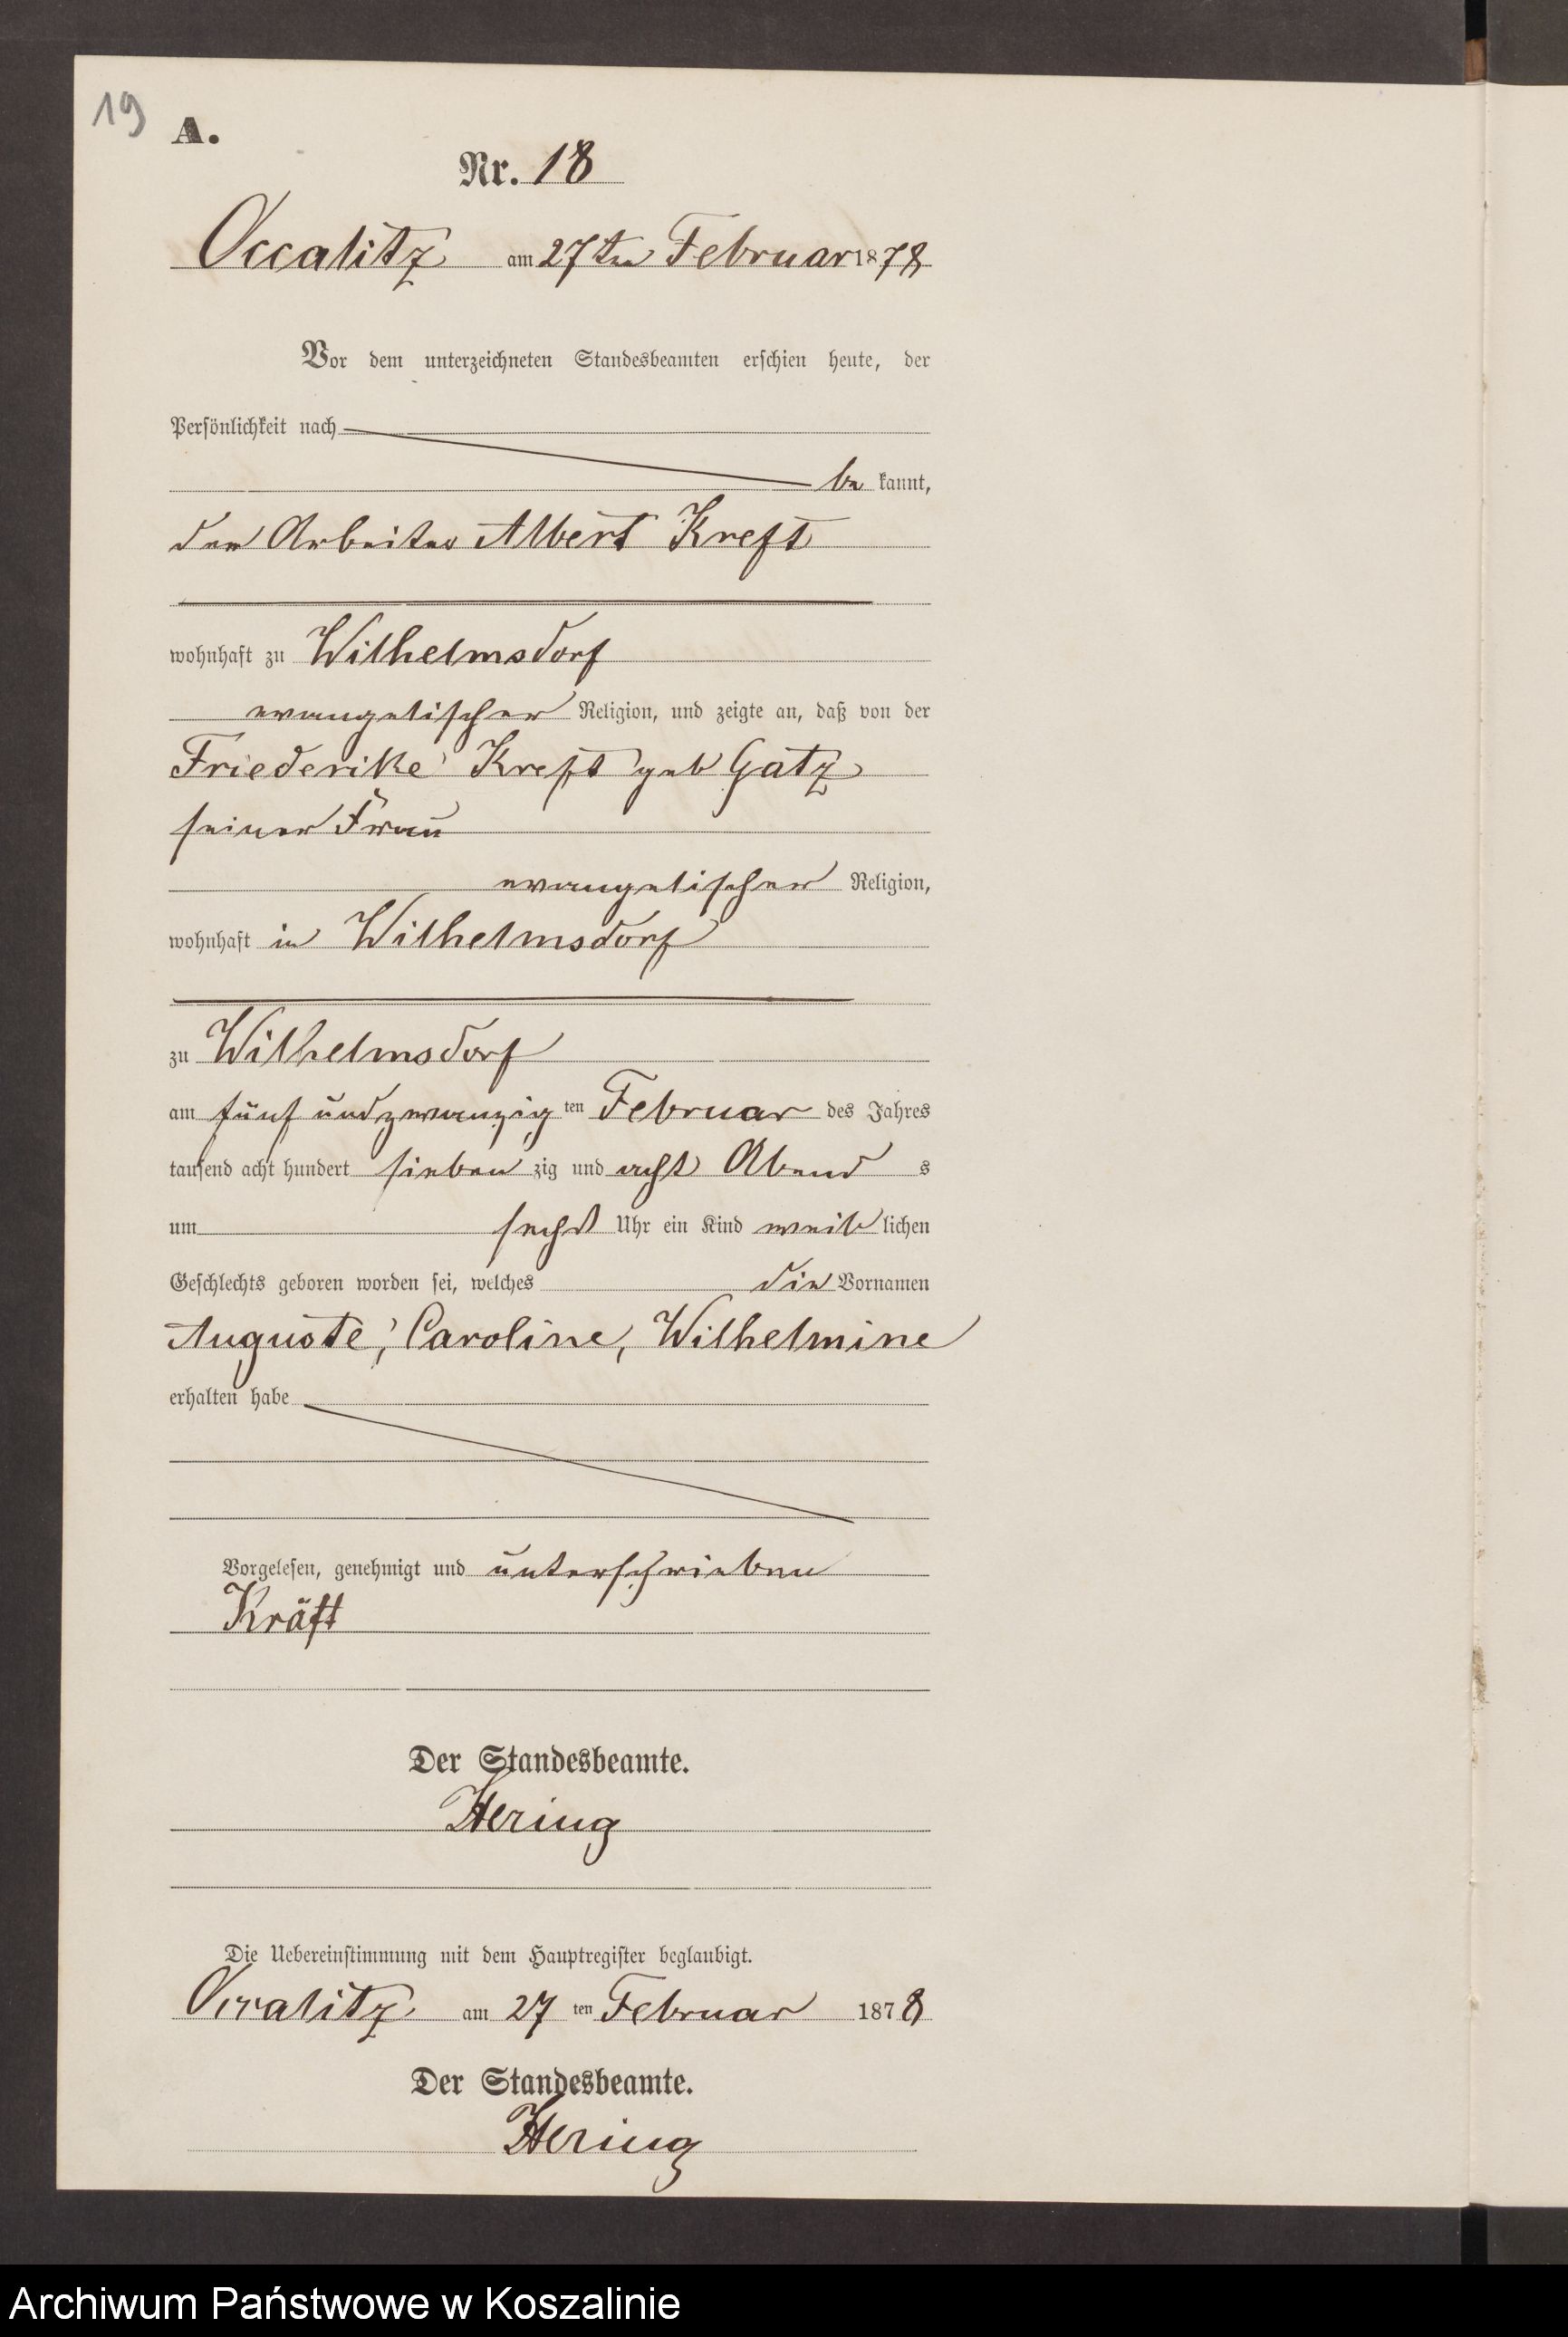 19
A.
Nr. 18
Occalitz am 27ten Februar 1878
Vor dem unterzeichneten Standesbeamten erschien heute, der
Persönlichkeit nach
be kannt,
der Arbeiter Albert Kreft
wohnhaft zu Wilhelmsdorf
evangelischer Religion, und zeigte an, daß von der
Friederike Kreft geb Gatz
seiner Frau
evangelischer Religion,
wohnhaft in Wilhelmsdorf
zu Wilhelmsdorf
am fünf und zwanzig ten Februar des Jahres
tausend acht hundert sieben zig und acht Abend s
um sechs Uhr ein Kind weib lichen
Geschlechts geboren worden sei, welches die Vornamen
Auguste, Caroline, Wilhelmine
erhalten habe
Vorgelesen, genehmigt und unterschrieben
Kräft
Der Standesbeamte.
Hering
Die Uebereinstimmung mit dem Hauptregister beglaubigt.
Occalitz am 27 ten Februar 1878
Der Standesbeamte.
Hering
Archiwum Państwowe w Koszalinie